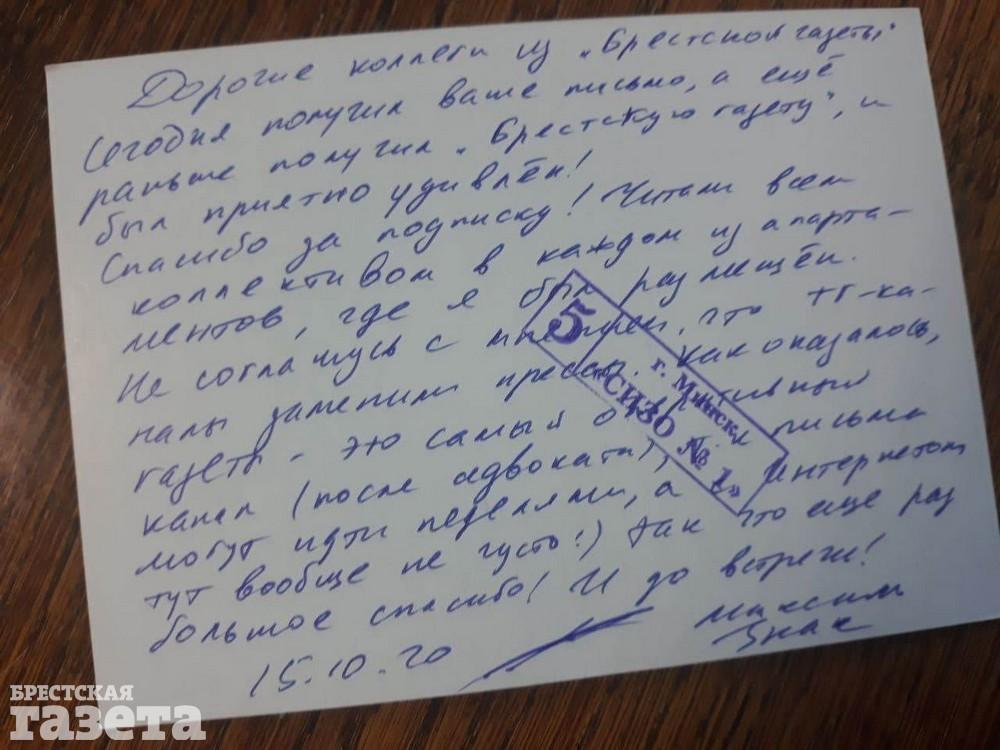 Дорогие коллеги из „Брестской газеты"
Сегодня получил ваше письмо, а ещё
раньше получил „Брестскую газету", и
был приятно удивлён!
Спасибо за подписку! Читали всем
коллективом в каждом из апарта-
ментов, где я был размещён.
Не соглашусь с мнением, что тг-ка-
налы заменили прессу. Как оказалось,
газета - это самый оперативный
канал (после адвоката), письма
могут идти неделями, а с Интернетом
тут вообще не густо:) Так что еще раз
большое спасибо! И до встречи!
15.10.20
Максим
Знак
5
г. Минск
«СИЗО № 1»
БРЕСТСКАЯ
газета